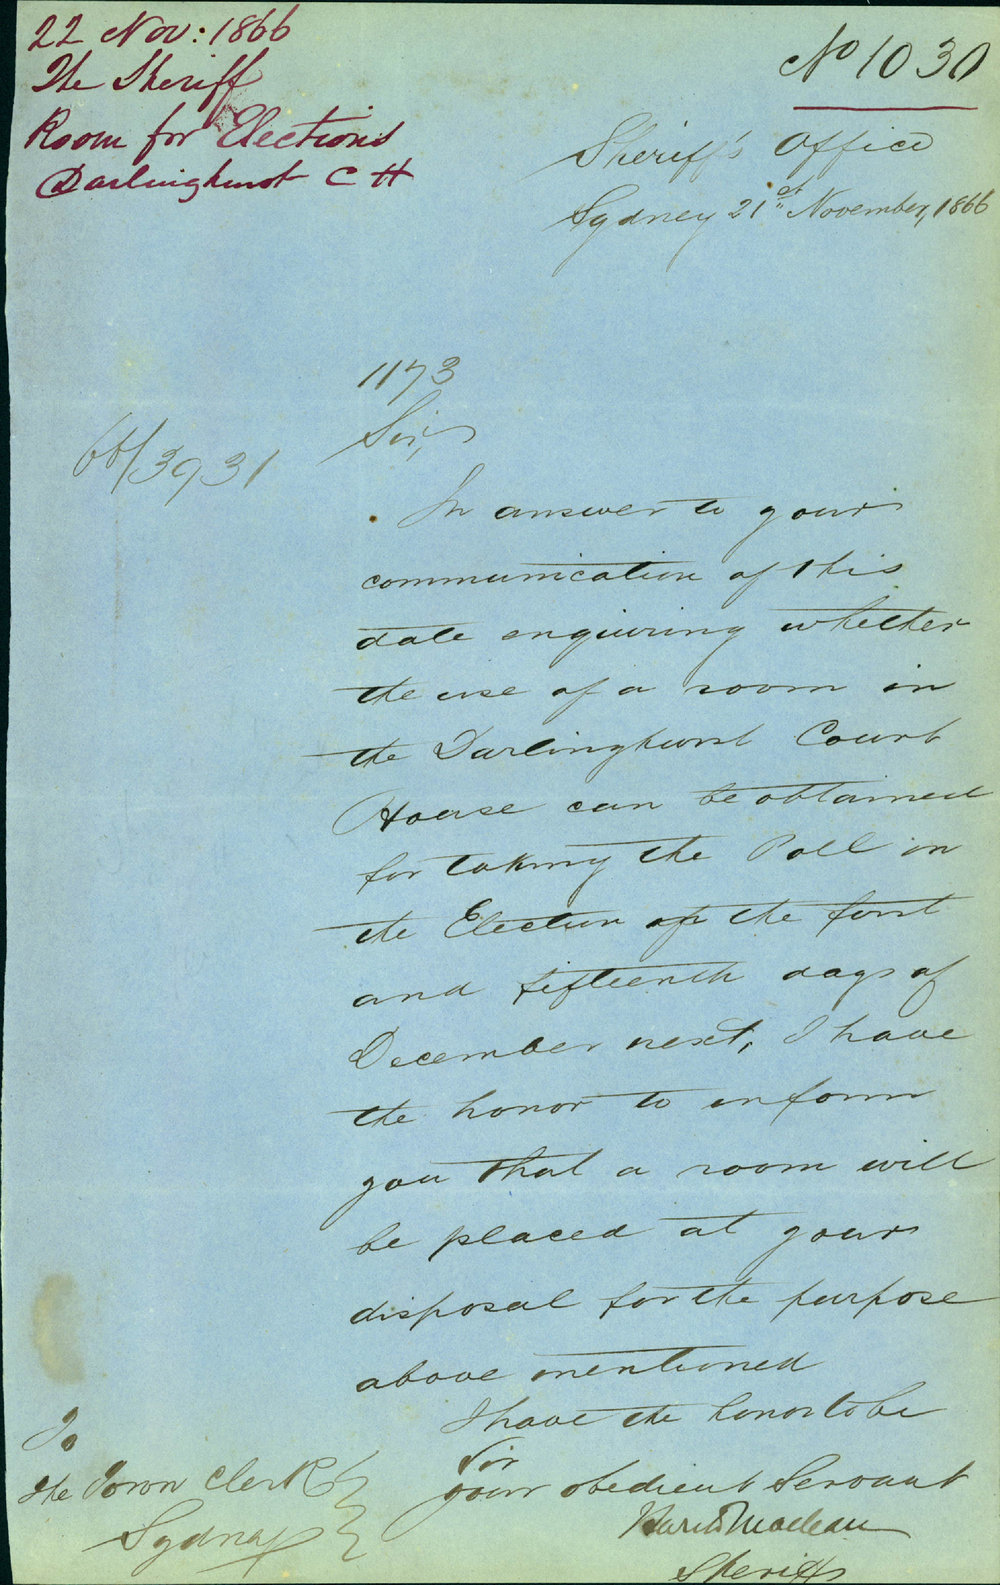 22 Nov: 1866
The Sheriff
Room for Elections
Darlinghurst C H
No 1030
Sheriff's Office
Sydney 21st November, 1866
1173
Sir,
66/3931
In answer to your
communication of this
date enquiring whether
the use of a room in
the Darlinghurst Court
House can be obtained
for taking the Poll in
the Election on the first
and fifteenth days of
December next, I have
the honor to inform
you that a room will
be placed at your
disposal for the purpose
above mentioned
I have the honor to be
Sir
your obedient Servant
Maclean
Sheriff
To
the Town Clerk
Sydney